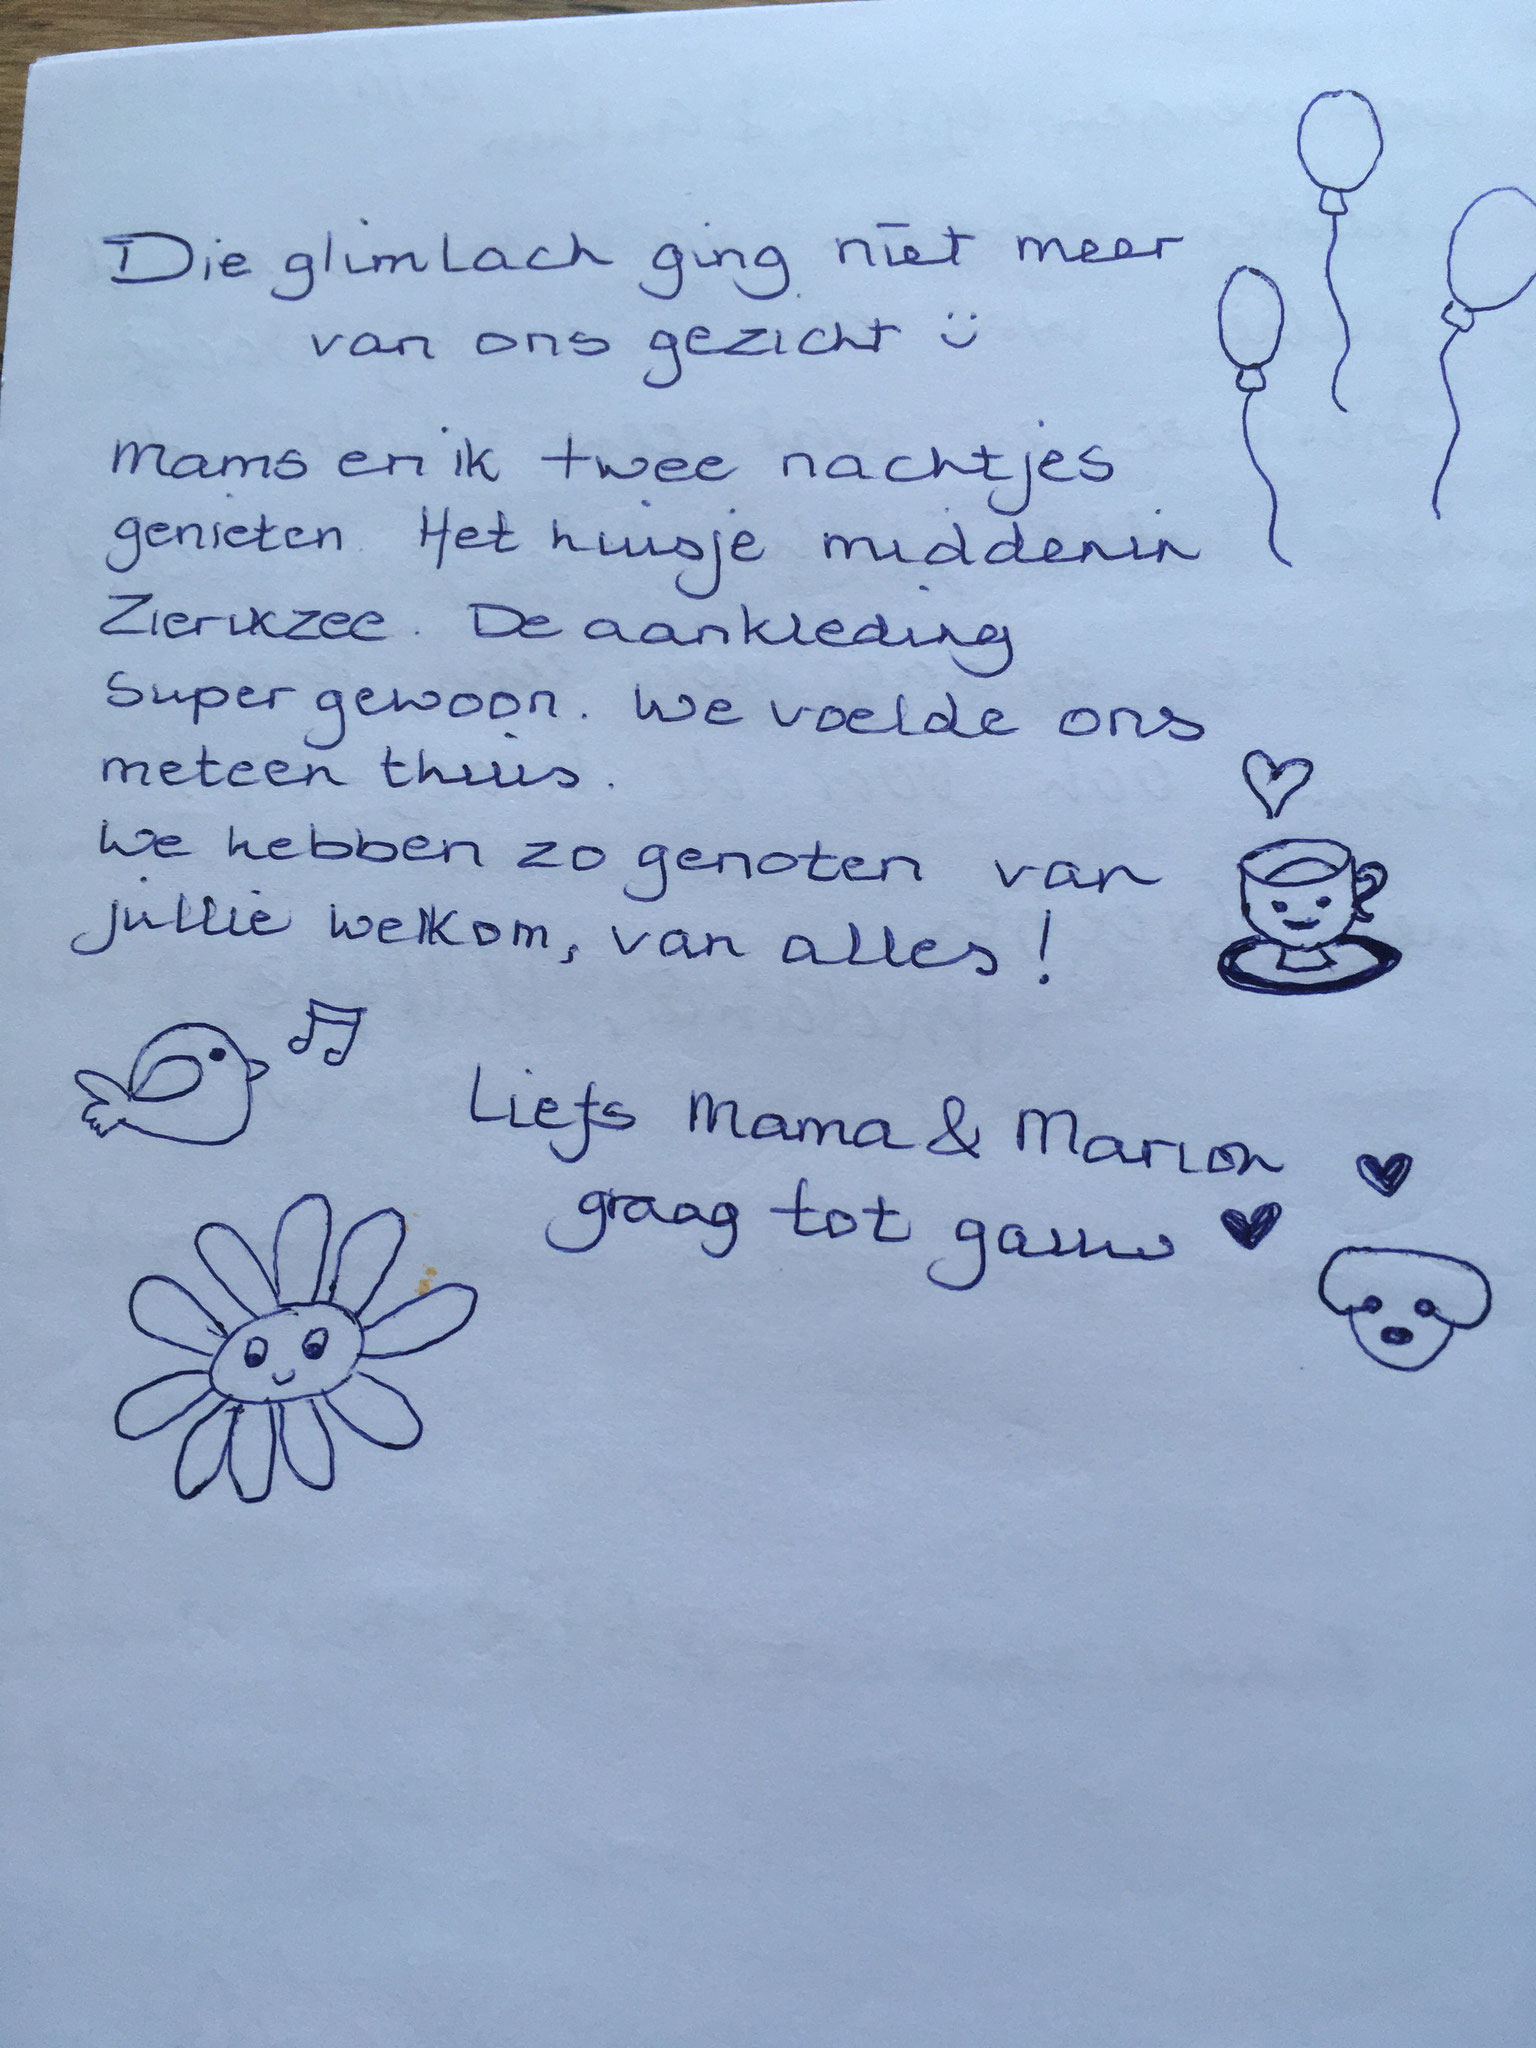 Die glimlach ging niet meer
van ons gezicht ü
Mams en ik twee nachtjes
genieten. Het huisje middenin
Zierikzee. De aankleding
super gewoon. We voelde ons
meteen thuis.
We hebben zo genoten van
jullie welkom, van alles!
Liefs Mama & Marion
graag tot gauw